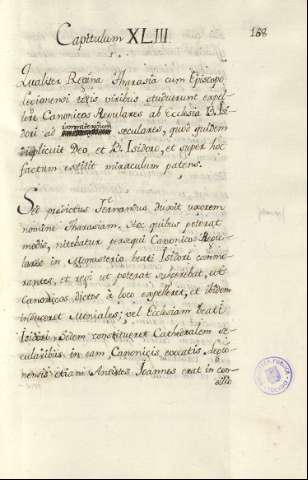 Capitulum XLIII
188
Qualiter Regina Tharasia cum Episcopo
Legionensi totis viribus studuerunt expel-
lere Canonicos Regulares ab ecclesia B. Isi-
dori ad seculares, quod quidem
displicuit Deo, et B. Isidoro, et super hoc
factum extitit miraculum patens.
Sed prædictus Fernandus duxit uxorem
nomine Tharasiam. Hęc quibus poterat
modis, nitebatur persequi Canonicos Regu-
lares in Monasterio beati Isidori comme-
rantes, et regi ut poterat suberebat, ut
Canonicos dictos à loco expelleret, et ibidem
induceret Moniales; vel Ecclesiam beati
Isidori Sedem constitueret Cathedralem se-
cularibus in eam Canonicis vocatis. Legio-
nensis etiam Antistes Joannes erat in con-
silio